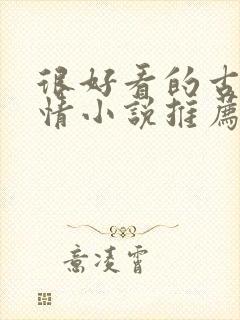 很好看的古
情小說推薦
意凌霄